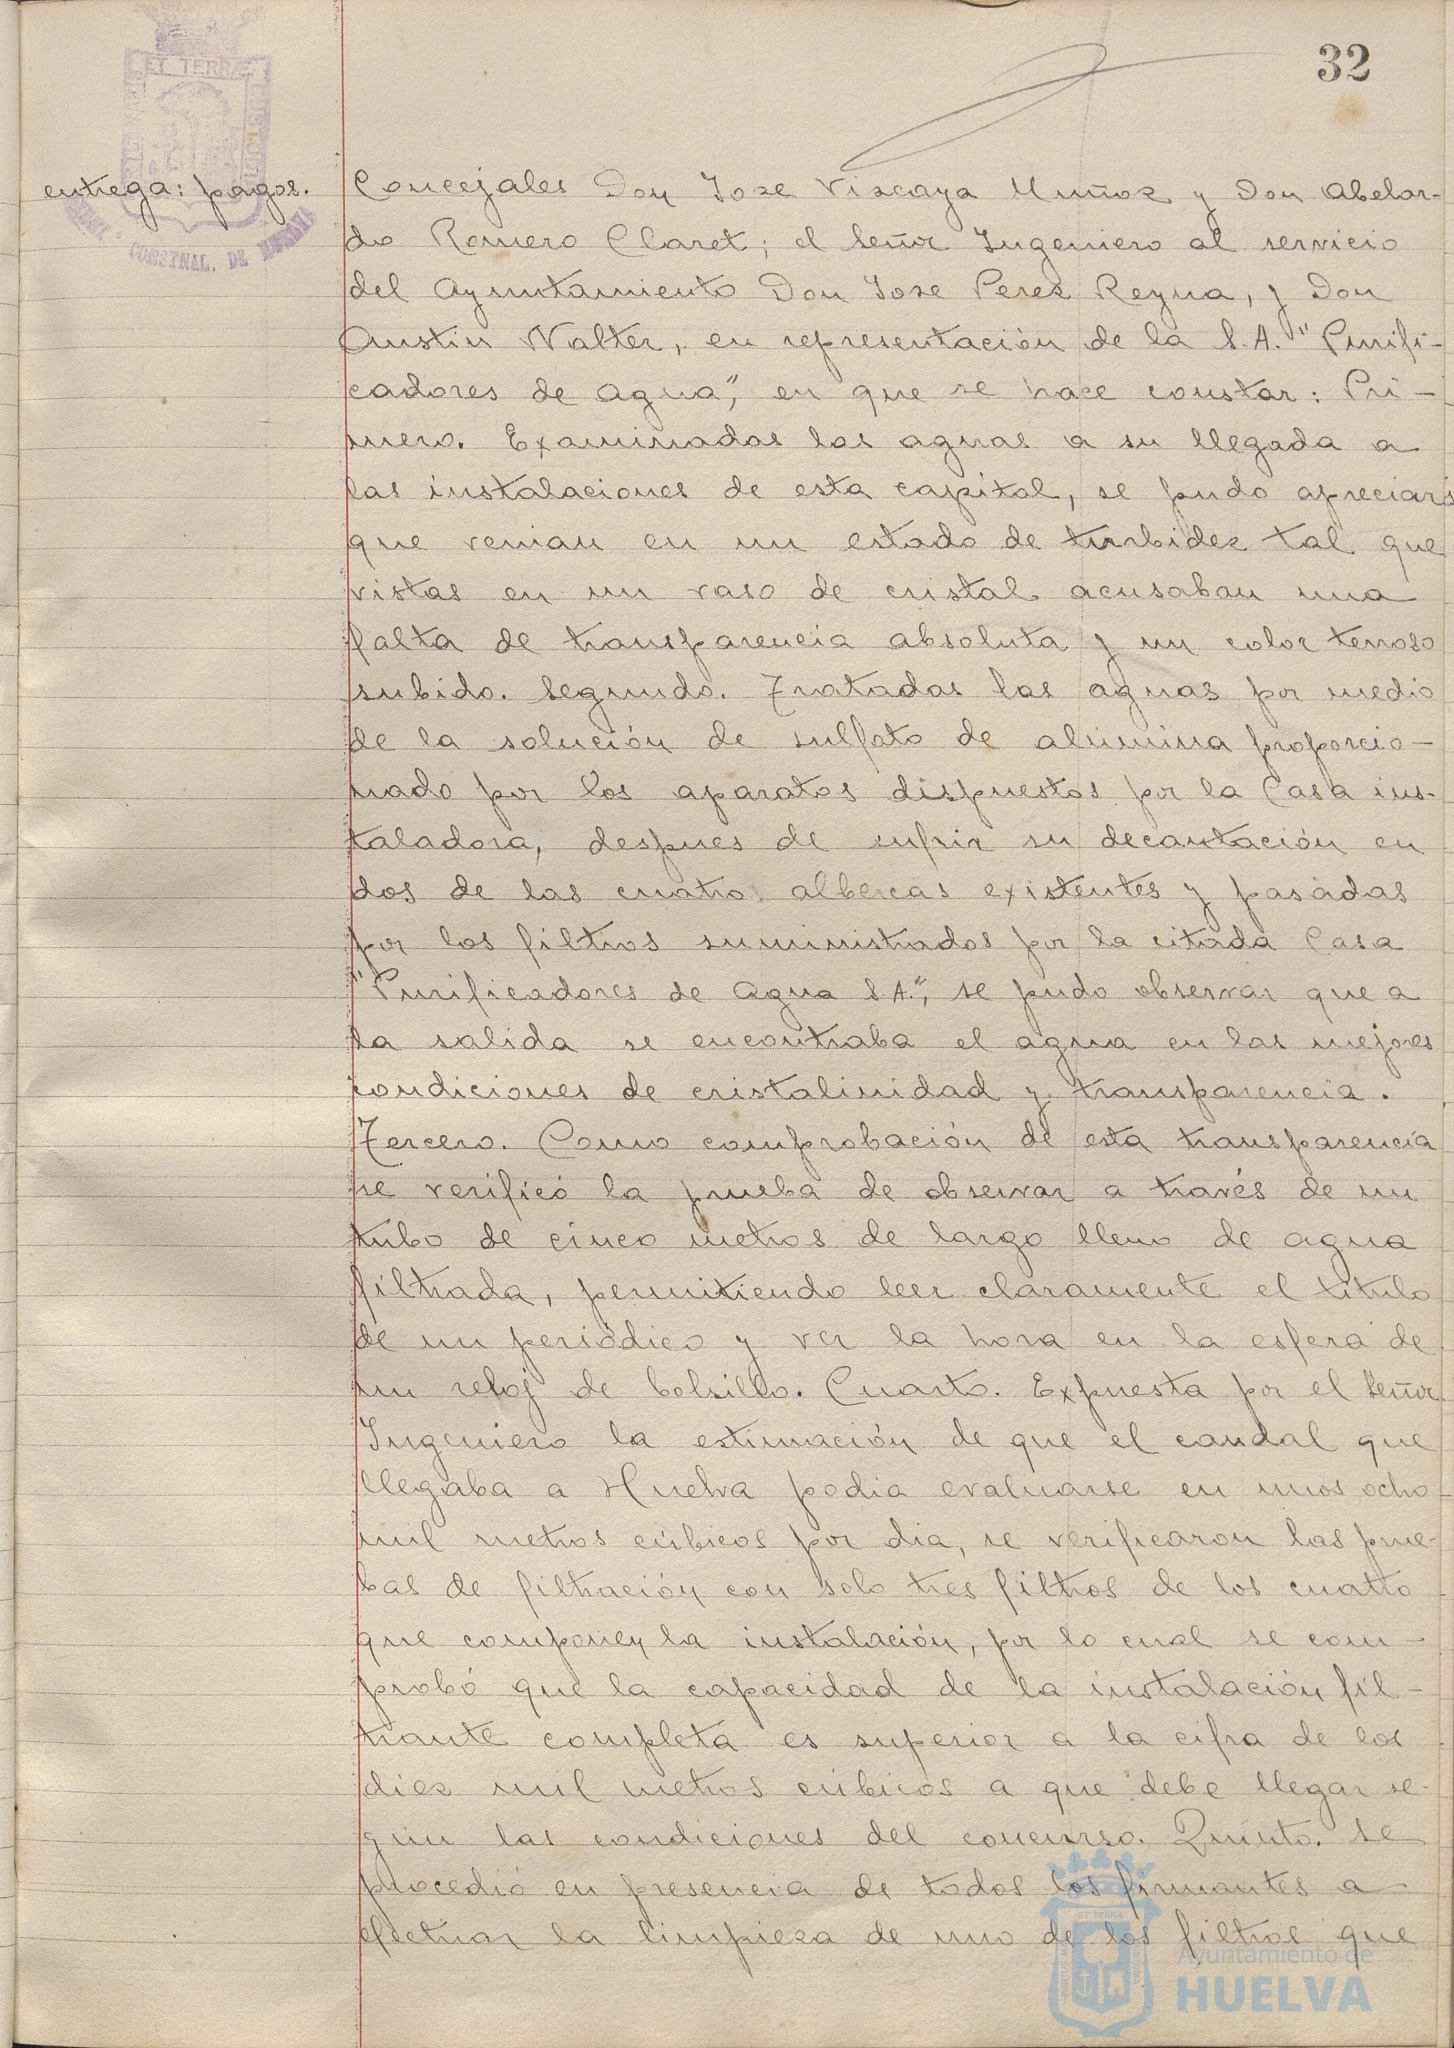 32
entrega: pagos.
Concejales Don Jose Viscaya Muñoz y Don Abelar-
do Romero Claret; el Señor Ingeniero al servicio
del Ayuntamiento Don Jose Perez Reyna, y Don
Austin Walter, en representación de la S.A. "Purifi-
cadores de agua", en que se hace constar: Pri-
mero. Examinadas las aguas a su llegada a
las instalaciones de esta capital, se pudo apreciar
que venian en un estado de turbidez tal que
vistas en un vaso de cristal acusaban una
falta de transparencia absoluta y un color terroso
subido. Segundo. Tratadas las aguas por medio
de la solución de sulfato de alumina proporcio-
nado por los aparatos dispuestos por la Casa ins-
taladora, despues de sufrir su decantación en
dos de las cuatro albercas existentes y pasadas
por los filtros suministrados por la citada Casa
"Purificadores de Agua S.A.", se pudo observar que a
la salida se encontraba el agua en las mejores
condiciones de cristalinidad y transparencia.
Tercero. Como comprobación de esta transparencia
se verificó la prueba de observar a través de un
tubo de cinco metros de largo lleno de agua
filtrada, permitiendo leer claramente el titulo
de un periódico y ver la hora en la esfera de
un reloj de bolsillo. Cuarto. Expuesta por el Señor
Ingeniero la estimación de que el caudal que
llegaba a Huelva podia evaluarse en unos ocho
mil metros cúbicos por dia, se verificaron las prue-
bas de filtración con solo tres filtros de los cuatro
que componen la instalación, por lo cual se com-
probó que la capacidad de la instalación fil-
trante completa es superior a la cifra de los
diez mil metros cúbicos a que debe llegar se-
gún las condiciones del concurso. Quinto. Se
procedió en presencia de todos los firmantes a
efectuar la limpieza de uno de los filtros que
Ayuntamiento de
HUELVA
ET TERRÆ
CONSTNAL. DE